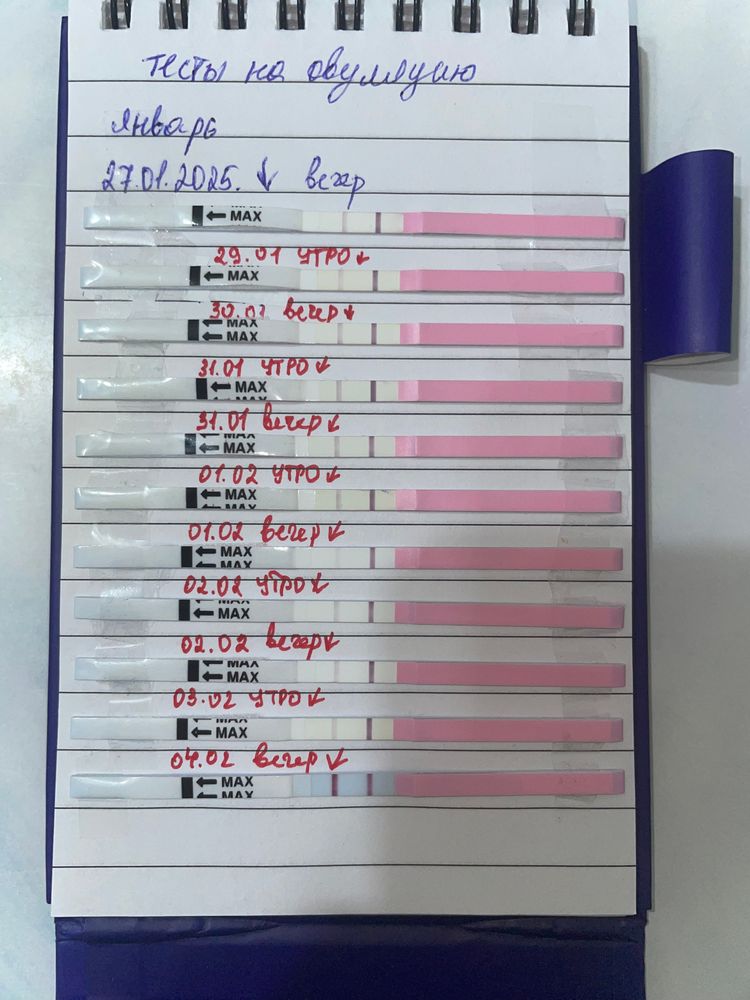 тесты на овуляцию
январь
27.01.2025. ↓ вечер
← MAX
29.01 УТРО↓
← MAX
30.01 вечер↓
MAX
← MAX
31.01 УТРО↓
← MAX
MAX
31.01 вечер↓
MAX
← MAX
01.02 УТРО↓
← MAX
← MAX
01.02 вечер↓
← MAX
← MAX
02.02 УТРО↓
MAX
← MAX
02.02 вечер↓
← MAX
← MAX
03.02 УТРО↓
MAX
← MAX
04.02 вечер↓
← MAX
← MAX